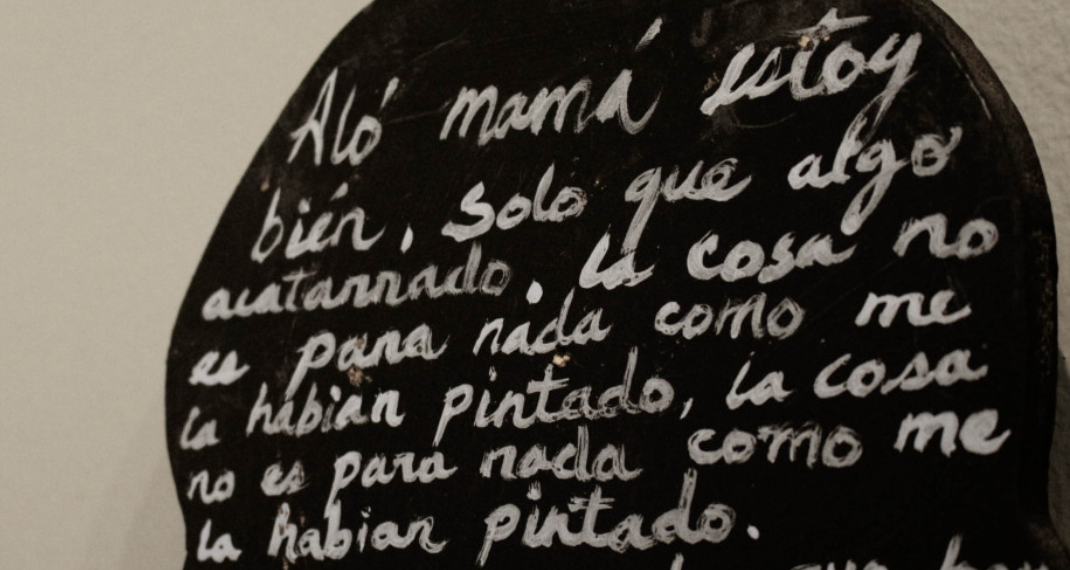 Aló mamá estoy
bién, solo que algo
acatarrado. La cosa no
es para nada como me
la habian pintado, la cosa
no es para nada como me
la habian pintado.
que hay